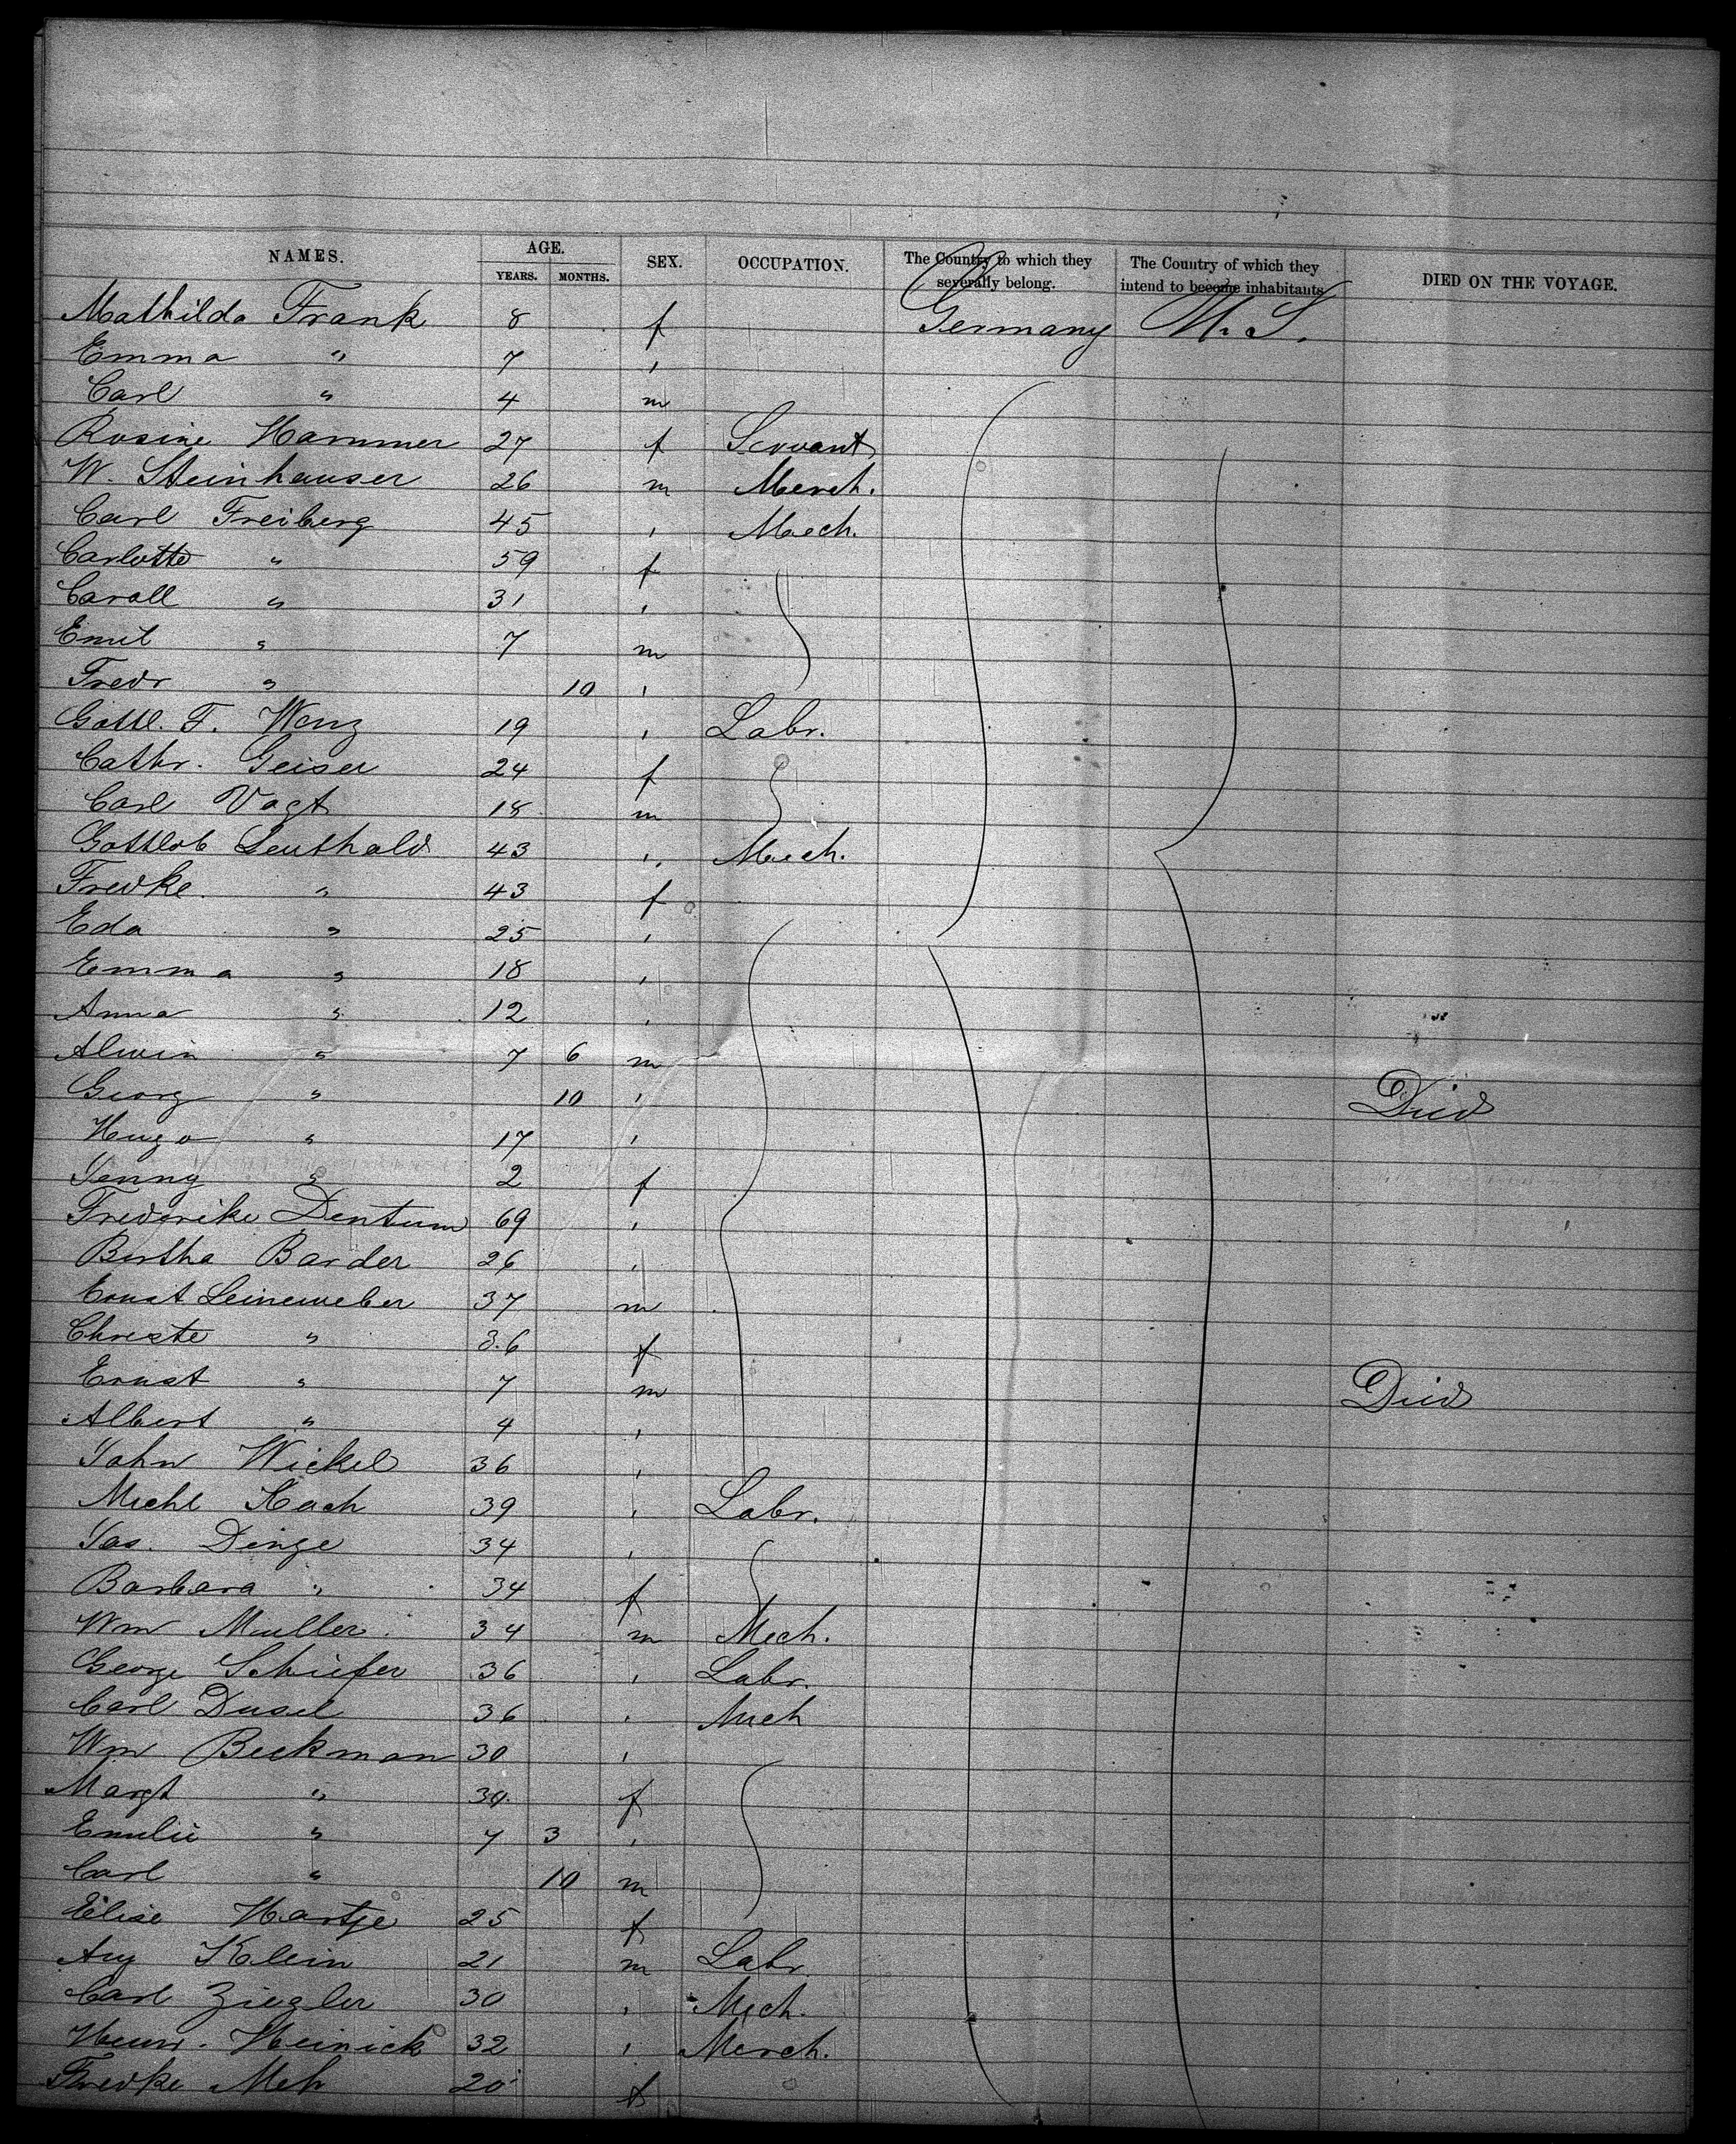 NAMES. AGE. YEARS. MONTHS. SEX. OCCUPATION. The Country to which they severally belong. The Country of which they intend to become inhabitants DIED ON THE VOYAGE.
Mathilda Frank 8 f Germany U. S.
Emma " 7 "
Carl " 4 m
Rosine Hammer 27 f Servant
W. Steinhauser 26 m Merch.
Carl Freiberg 45 " Mech.
Carlotte " 59 f
Caroll " 31 "
Emil " 7 m
Fredr " 10 "
Gottl. F. Wenz 19 " Labr.
Cathr. Geiser 24 f
Carl Vogt 18 m
Gottlob Leuthold 43 " Mech.
Fredke. " 43 f
Eda " 25 "
Emma " 18 "
Anna " 12 "
Alwin " 7 6 m
Georg " 10 " Died
Hugo " 17 "
Jenny " 2 f
Frederike Dentum 69 "
Bertha Barder 26 "
Ernst Leineweber 37 m
Christe " 36 f
Ernst " 7 m Died
Albert " 4 "
John Wickel 36 "
Michl Koch 39 " Labr.
Jas. Dinge 34 "
Barbara " 34 f
Wm Muller 34 m Mech.
George Schiefer 36 " Labr.
Carl Dusel 36 " Mech
Wm Beckman 30 "
Margt " 30 f
Emilie " 7 3 "
Carl " 10 m
Elise Hartje 25 f
Aug Klein 21 m Labr
Carl Ziegler 30 " Mech.
Henr. Heinick 32 " Merch.
Fredke Meh 20 f